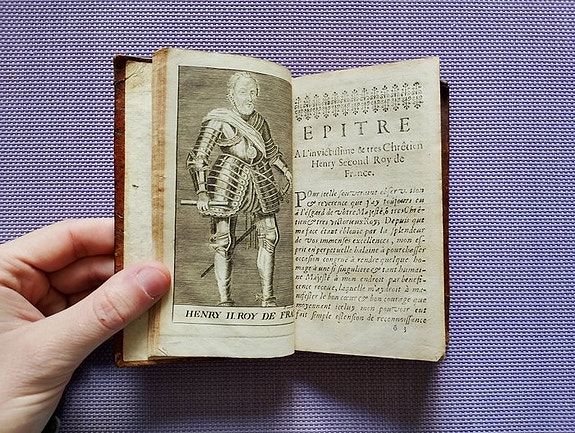 HENRY II. ROY DE FRA
EPITRE
A L'invictissime & tres Chrétien
Henry Second Roy de
France.
POur icelle souveraine observation
& reverence que j'ay toujours eu
à l'égard de vôtre Majesté, ô tres Chré-
tien & tres victorieux Roy; Depuis que
ma face étant éblouie par la splendeur
de vos immenses excellences, mon es-
prit en perpetuelle haleine à pourchasser
occasion congruë à rendre quelque hom-
mage à une si singuliere & tant humai-
ne Majesté à mon endroit par benefi-
cence receuë, laquelle m'aydroit à ma-
nifester le bon cœur & bon courage que
moyennant iceluy mon pouvoir eut
fait simple extension de reconnoissance